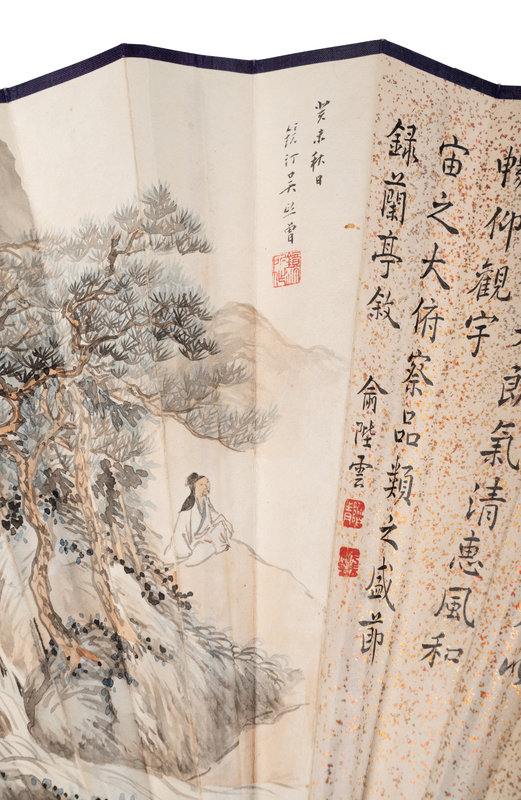 朗氣清惠風和
暢仰觀宇
宙之大俯察品類之盛節
錄蘭亭敘
俞陛雲
癸未秋日
鏡汀吴熙曾
鏡汀所作